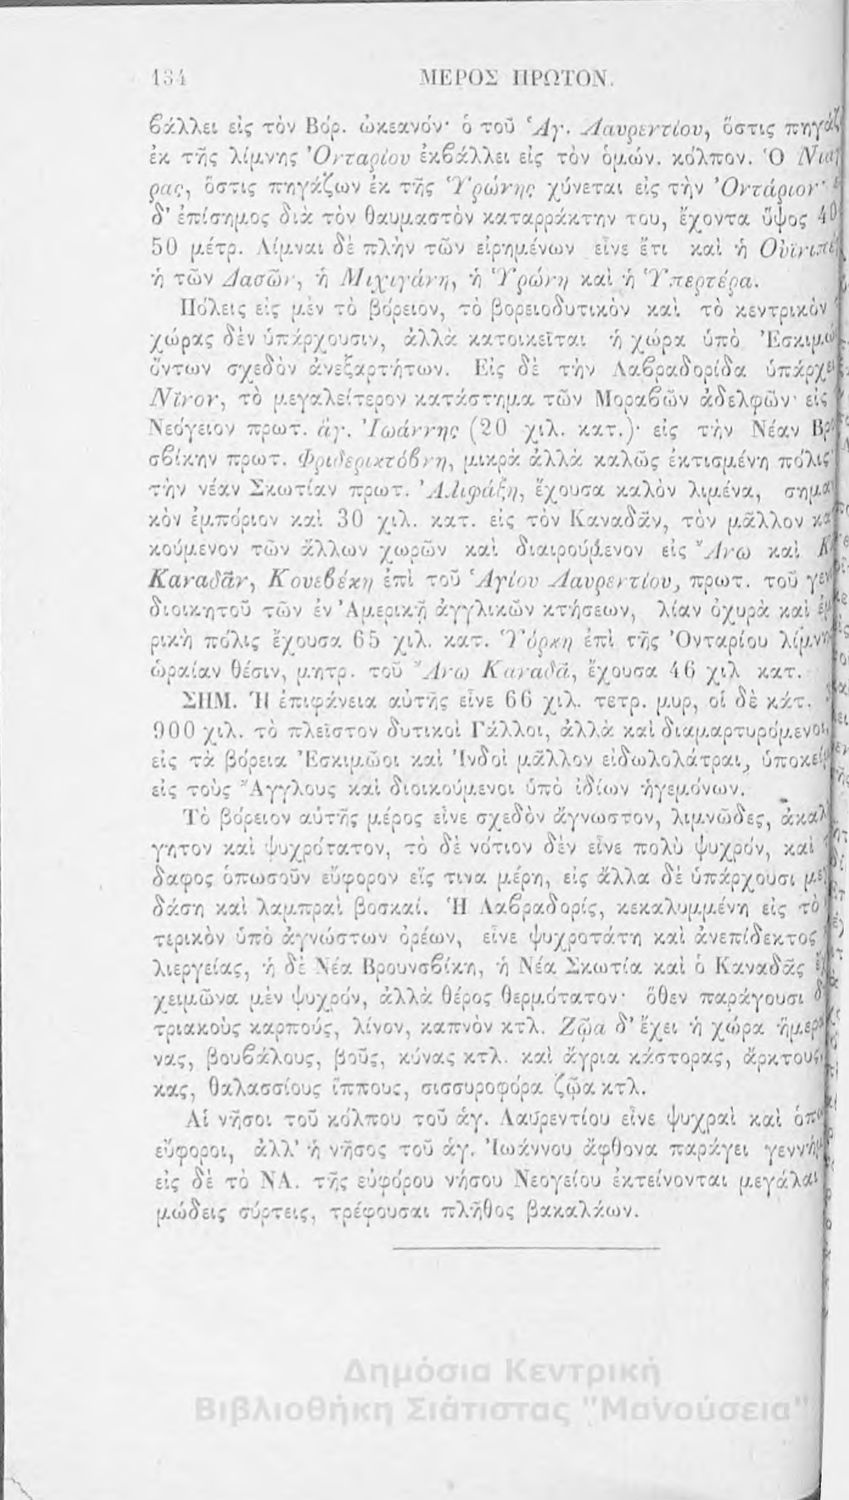 134 ΜΕΡΟΣ ΠΡΩΤΟΝ.
βάλλει εἰς τὸν Βόρ. ὠκεανόν· ὁ τοῦ Ἁγ. Λαυρεντίου, ὅστις πηγάζ
ἐκ τῆς λίμνης Ὀνταρίου ἐκβάλλει εἰς τὸν ὁμών. κόλπον. Ὁ
ρας, ὅστις πηγάζων ἐκ τῆς Ὑρώνης χύνεται εἰς τὴν Ὀντάριον·
δ' ἐπίσημος διὰ τὸν θαυμαστὸν καταρράκτην του, ἔχοντα ὕψος 40
50 μέτρ. Λίμναι δὲ πλὴν τῶν εἰρημένων εἶνε ἔτι καὶ ἡ
ἡ τῶν Δασῶν, ἡ Μιχιγάνη, ἡ Ὑρώνη καὶ ἡ Ὑπερτέρα.
Πόλεις εἰς μὲν τὸ βόρειον, τὸ βορειοδυτικὸν καὶ τὸ κεντρικὸν
χώρας δὲν ὑπάρχουσιν, ἀλλὰ κατοικεῖται ἡ χώρα ὑπὸ Ἐσκιμώ
ὄντων σχεδὸν ἀνεξαρτήτων. Εἰς δὲ τὴν Λαβραδορίδα ὑπάρχει
Νῖνον, τὸ μεγαλείτερον κατάστημα τῶν Μοραβῶν ἀδελφῶν· εἰς
Νεόγειον πρωτ. ἅγ. Ἰωάννης (20 χιλ. κατ.)· εἰς τὴν Νέαν
σβίκην πρωτ. Φριδερικτόβνη, μικρὰ ἀλλὰ καλῶς ἐκτισμένη πόλις·
τὴν νέαν Σκωτίαν πρωτ. Ἁλιφάξη, ἔχουσα καλὸν λιμένα, σημα
κὸν ἐμπόριον καὶ 30 χιλ. κατ. εἰς τὸν Καναδᾶν, τὸν μᾶλλον κα
κούμενον τῶν ἄλλων χωρῶν καὶ διαιρούμενον εἰς Ἄνω καὶ Κ
Καναδᾶν, Κουεβέκη ἐπὶ τοῦ Ἁγίου Λαυρεντίου, πρωτ. τοῦ γεν
διοικητοῦ τῶν ἐν Ἀμερικῇ ἀγγλικῶν κτήσεων, λίαν ὀχυρὰ καὶ ἐμ
ρικὴ πόλις ἔχουσα 65 χιλ. κατ. Ὑόρκη ἐπὶ τῆς Ὀνταρίου λίμνη
ὡραίαν θέσιν, μητρ. τοῦ Ἄνω Καναδᾶ, ἔχουσα 46 χιλ κατ.
ΣΗΜ. Ἡ ἐπιφάνεια αὐτῆς εἶνε 66 χιλ. τετρ. μυρ, οἱ δὲ κάτ.
900 χιλ. τὸ πλεῖστον δυτικοὶ Γάλλοι, ἀλλὰ καὶ διαμαρτυρόμενοι,
εἰς τὰ βόρεια Ἐσκιμῶοι καὶ Ἰνδοὶ μᾶλλον εἰδωλολάτραι, ὑποκεί
εἰς τοὺς Ἄγγλους καὶ διοικούμενοι ὑπὸ ἰδίων ἡγεμόνων.
Τὸ βόρειον αὐτῆς μέρος εἶνε σχεδὸν ἄγνωστον, λιμνῶδες, ἀκαλ
γητον καὶ ψυχρότατον, τὸ δὲ νότιον δὲν εἶνε πολὺ ψυχρόν, καὶ
δαφος ὁπωσοῦν εὔφορον εἴς τινα μέρη, εἰς ἄλλα δὲ ὑπάρχουσι με
δάση καὶ λαμπραὶ βοσκαί. Ἡ Λαβραδορίς, κεκαλυμμένη εἰς τὸ
τερικὸν ὑπὸ ἀγνώστων ὀρέων, εἶνε ψυχροτάτη καὶ ἀνεπίδεκτος
λιεργείας, ἡ δὲ Νέα Βρουνσβίκη, ἡ Νέα Σκωτία καὶ ὁ Καναδᾶς
χειμῶνα μὲν ψυχρόν, ἀλλὰ θέρος θερμότατον· ὅθεν παράγουσι
τριακοὺς καρπούς, λίνον, καπνὸν κτλ. Ζῷα δ' ἔχει ἡ χώρα ἥμερ
νας, βουβάλους, βοῦς, κύνας κτλ. καὶ ἄγρια κάστορας, ἄρκτους,
κας, θαλασσίους ἵππους, σισσυροφόρα ζῷα κτλ.
Αἱ νῆσοι τοῦ κόλπου τοῦ ἁγ. Λαυρεντίου εἶνε ψυχραὶ καὶ
εὔφοροι, ἀλλ' ἡ νῆσος τοῦ ἁγ. Ἰωάννου ἄφθονα παράγει γεννή
εἰς δὲ τὸ ΝΑ. τῆς εὐφόρου νήσου Νεογείου ἐκτείνονται μεγάλαι
μώδεις σύρτεις, τρέφουσαι πλῆθος βακαλάων.
Δημόσια Κεντρική
Βιβλιοθήκη Σιάτιστας "Μανούσεια"